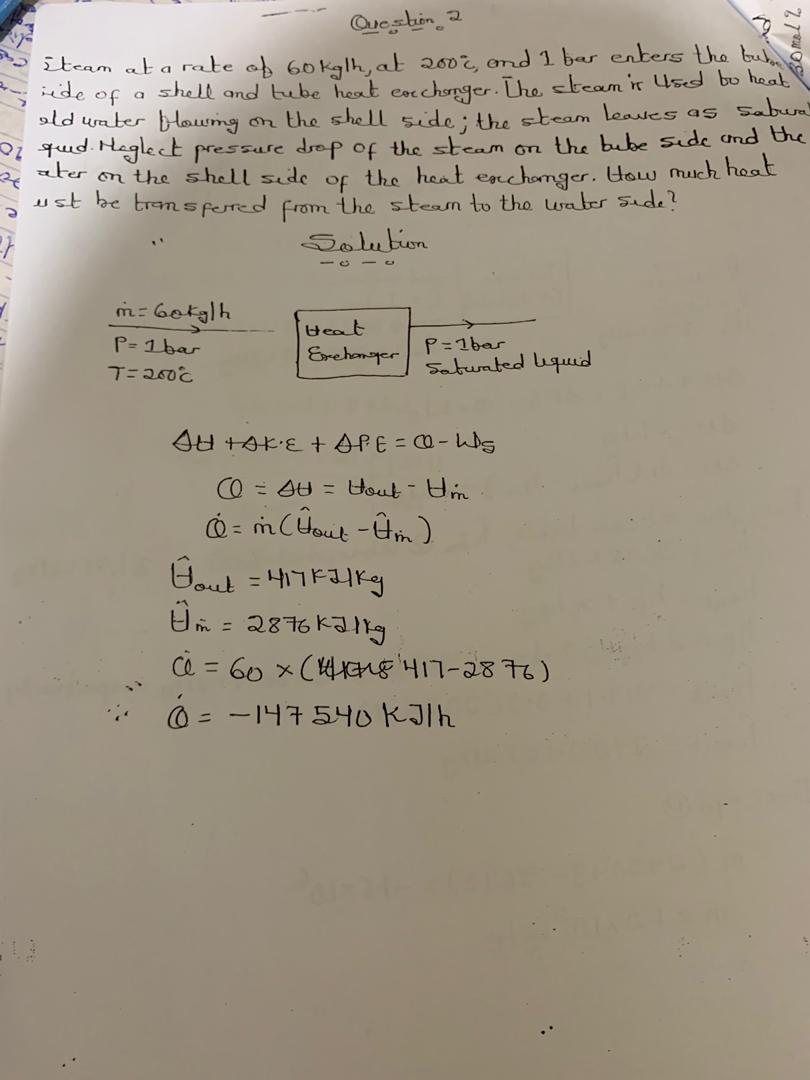 Question 2
Steam at a rate of 60kg/h, at 200°c, and 1 bar enters the tube
side of a shell and tube heat exchanger. The steam is Used to heat
old water flowing on the shell side; the steam leaves as satura
quid. Neglect pressure drop of the steam on the tube side and the
ater on the shell side of the heat exchanger. How much heat
ust be transferred from the steam to the water side?
Solution
ṁ = 60kg/h
P = 1bar
T = 200°c
Heat
Exchanger
P = 1bar
Saturated liquid
ΔH + ΔK.E + ΔP.E = Q - Ws
Q = ΔH = Hout - Hin
Q̇ = ṁ(Ĥout - Ĥin)
Ĥout = 417KJ/Kg
Ĥin = 2876KJ/kg
Q̇ = 60 × (417-2876)
∴ Q̇ = -147540KJ/h